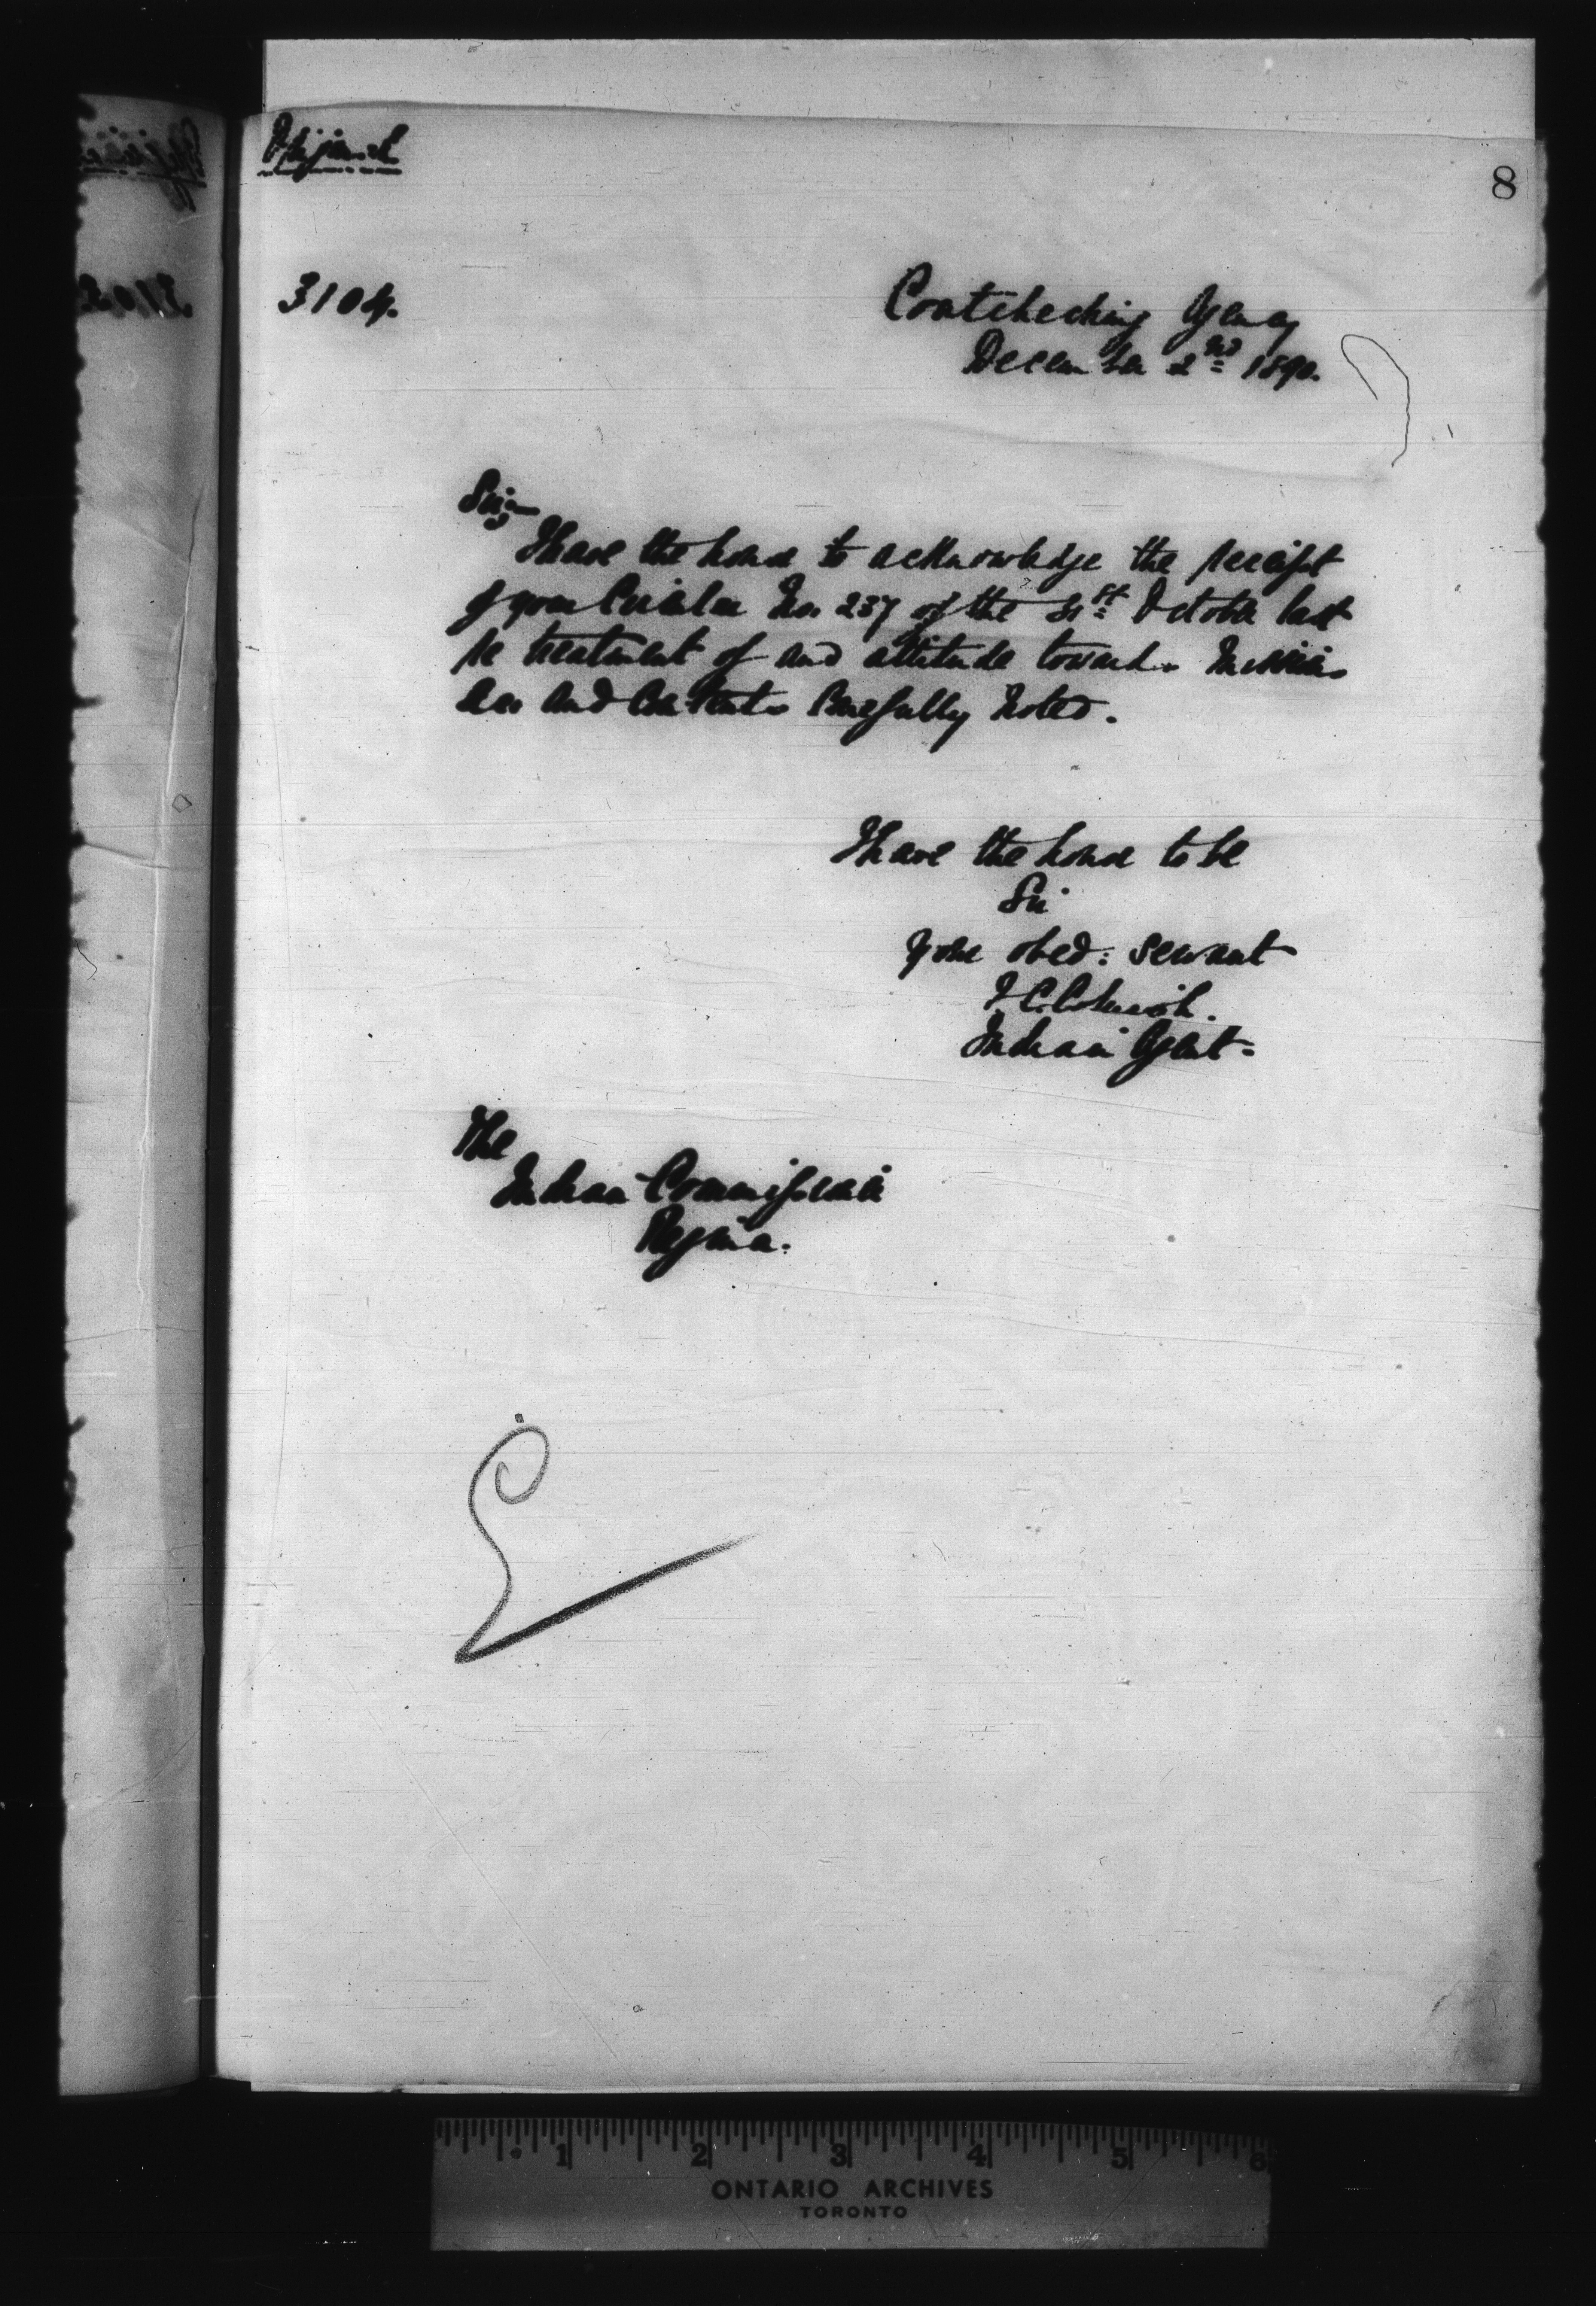 Original
8
3104.
Coutcheching Agency
December 2nd 1890.
Sir,
I have the honor to acknowledge the receipt
of your Circular No. 237 of the 31st October last
re treatment of and attitude towards Missiona
ries and contents Carefully Noted.
I have the honor to be
Sir
Your obed: servant
Indian Agent
The
Indian Commissioner
Regina.
1 2 3 4 5 6
ONTARIO ARCHIVES
TORONTO